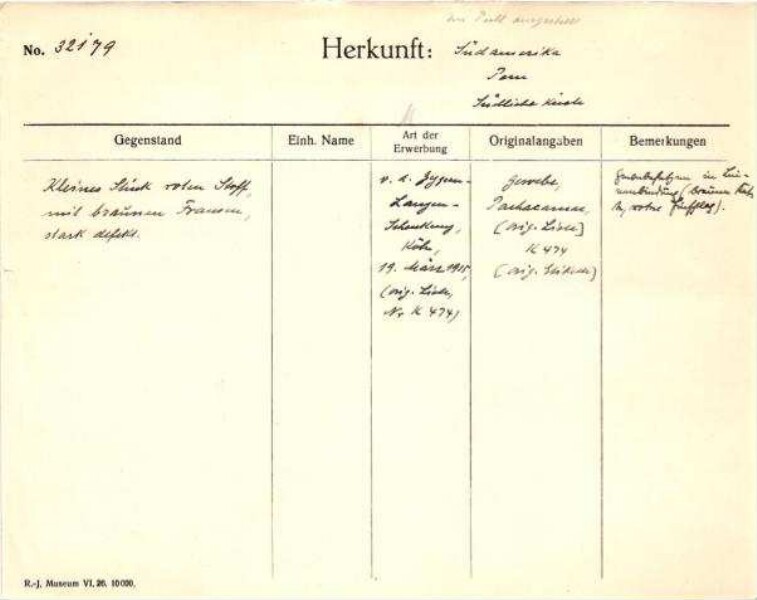 No. 32179
Herkunft: Südamerika
Peru
Südliche Küste
Gegenstand
Einh. Name
Art der
Erwerbung
Originalangaben
Bemerkungen
Kleines Stück roten Stoff,
mit braunen Fransen,
stark defekt.
v. d. Zypen-
Langen-
Schenkung,
Köln,
19. März 1915,
(orig. Liste,
Nr K 474)
Gewebe,
Pachacamac,
(orig. Liste)
K 474
(orig. Etikett)
in Lei-
nenbindung (braune
rotne
R.-J. Museum VI. 26. 10000.